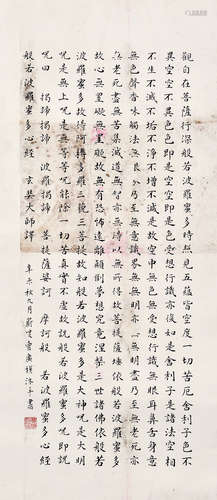 觀自在菩薩行深般若波羅蜜多時照見五蘊皆空度一切苦厄舍利子色不
異空空不異色色即是空空即是色受想行識亦復如是舍利子是諸法空相
不生不滅不垢不淨不增不減是故空中無色無受想行識無眼耳鼻舌身意
無色聲香味觸法無眼界乃至無意識界無無明亦無無明盡乃至無老死亦
無老死盡無苦集滅道無智亦無得以無所得故菩提薩埵依般若波羅蜜多
故心無罣礙無罣礙故無有恐怖遠離顛倒夢想究竟涅槃三世諸佛依般若
波羅蜜多故得阿耨多羅三藐三菩提故知般若波羅蜜多是大神咒是大明
咒是無上咒是無等等咒能除一切苦真實不虛故說般若波羅蜜多咒即說
咒曰 揭諦揭諦 波羅揭諦 波羅僧揭諦 菩提薩婆訶 摩訶般若波羅蜜多心經
般若波羅蜜多心經 玄奘大師譯
辛未秋九月 沐手書